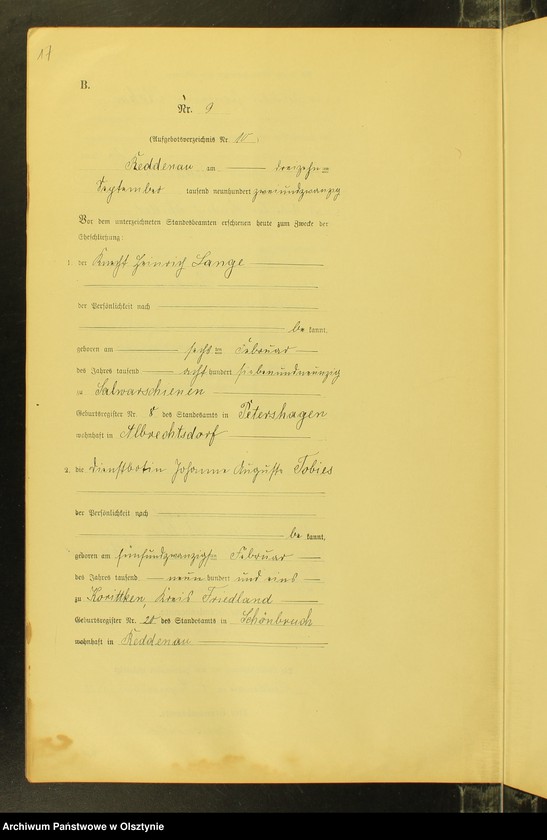 17
B.
Nr. 9
(Aufgebotsverzeichnis Nr. 10)
Keddenau am dreizehnten
September tausend neunhundert zweiundzwanzig
Vor dem unterzeichneten Standesbeamten erschienen heute zum Zwecke der
Eheschließung:
1. der Knecht Heinrich Lange
der Persönlichkeit nach
be kannt,
geboren am sechsten Februar
des Jahres tausend acht hundert siebenundneunzig
zu Salwarschienen
Geburtsregister Nr. 8 des Standesamts in Petershagen
wohnhaft in Albrechtsdorf
2. die Dienstbotin Johanne Auguste Tobies
der Persönlichkeit nach
be kannt,
geboren am fünfundzwanzigsten Februar
des Jahres tausend neun hundert und eins
zu Korittken, Kreis Friedland
Geburtsregister Nr. 20 des Standesamts in Schönbruch
wohnhaft in Keddenau
Archiwum Państwowe w Olsztynie